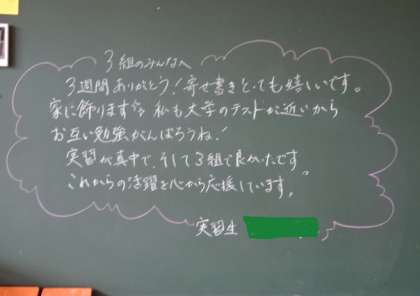 3組のみんなへ
3週間ありがとう!寄せ書きとても嬉しいです。
家に飾ります☆ 私も大学のテストが近いから
お互い勉強がんばろうね!
実習が真中で、そして3組で良かったです。
これからの活躍を心から応援しています。
実習生